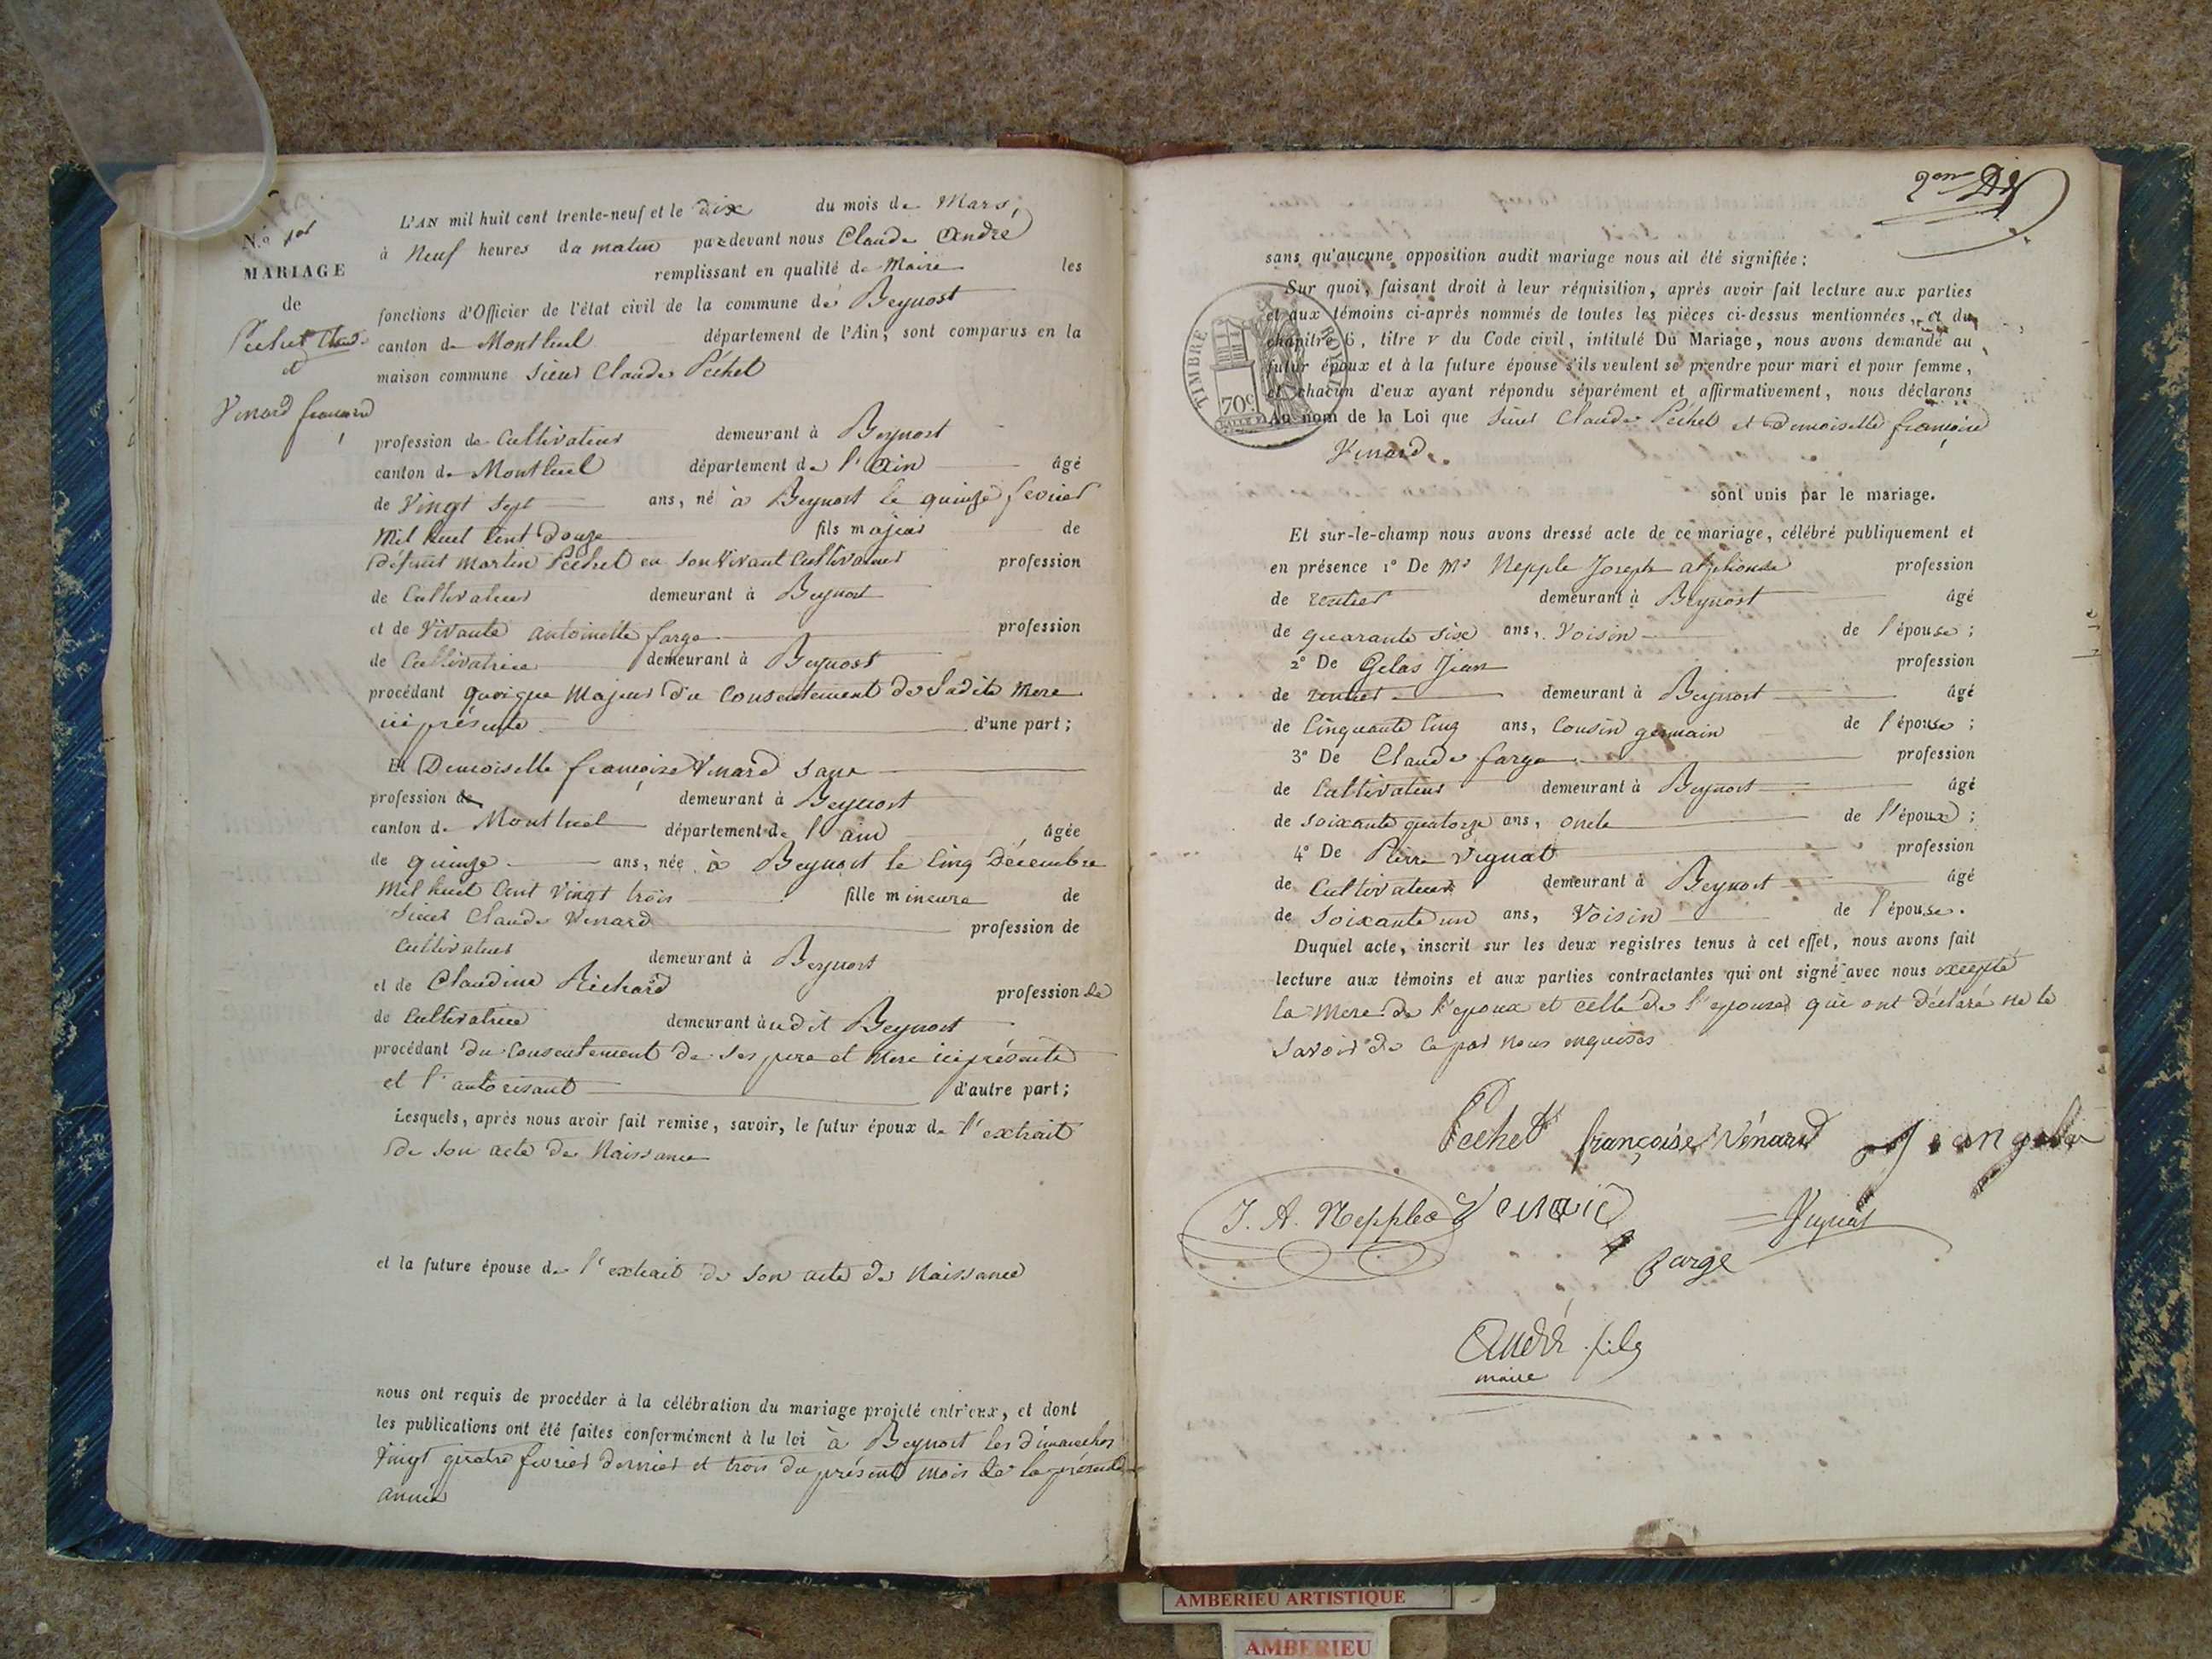 N.o 1er
MARIAGE
de
Péchet Claude
et
Vénard françoise
L'AN mil huit cent trente-neuf et le dix du mois de Mars,
à Neuf heures du matin pardevant nous Claude André
remplissant en qualité de Maire les
fonctions d'Officier de l'état civil de la commune de Beynost
canton de Montluel département de l'Ain, sont comparus en la
maison commune sieur Claude Péchet
profession de Cultivateur demeurant à Beynost
canton de Montluel département de l'Ain âgé
de Vingt sept ans, né à Beynost le quinze fevrier
Mil huit Cent Douze fils majeur de
Défunt Martin Péchet en son Vivant Cultivateur profession
de Cultivateur demeurant à Beynost
et de Vivante antoinette farge profession
de Cultivatrice demeurant à Beynost
procédant quoique Majeur du Consentement de Sadite Mere
ici présente d'une part;
Et Demoiselle françoise Vénard sans
profession de demeurant à Beynost
canton de Montluel département de l'ain âgée
de quinze ans, née à Beynost le Cinq Décembre
Mil huit Cent Vingt trois fille mineure de
Sieur Claude Vénard profession de
Cultivateur demeurant à Beynost
et de Claudine Richard profession de
de Cultivatrice demeurant audit Beynost
procédant du Consentement de ses pere et Mere ici présente
et l'autorisant d'autre part;
Lesquels, après nous avoir fait remise, savoir, le futur époux de l'extrait
de son acte de Naissance
et la future épouse de l'extrait de son acte de Naissance
nous ont requis de procéder à la célébration du mariage projeté entr'eux, et dont
les publications ont été faites conformément à la loi à Beynost les dimanches
Vingt quatre fevrier dernier et trois du présent mois de la présente
année
sans qu'aucune opposition audit mariage nous ait été signifiée;
Sur quoi, faisant droit à leur réquisition, après avoir fait lecture aux parties
et aux témoins ci-après nommés de toutes les pièces ci-dessus mentionnées, et du
chapitre 6, titre V du Code civil, intitulé Du Mariage, nous avons demandé au
futur époux et à la future épouse s'ils veulent se prendre pour mari et pour femme,
et chacun d'eux ayant répondu séparément et affirmativement, nous déclarons
Au nom de la Loi que sieur Claude Péchet et Demoiselle françoise
Vénard
sont unis par le mariage.
TIMBRE ROYAL
70c
Et sur-le-champ nous avons dressé acte de ce mariage, célébré publiquement et
en présence 1° De Mr Nepple Joseph alphonse profession
de rentier demeurant à Beynost âgé
de quarante six ans, Voisin de l'épouse;
2° De Gelas Jean profession
de rentier demeurant à Beynost âgé
de Cinquante Cinq ans, Cousin germain de l'épouse;
3° De Claude farge profession
de Cultivateur demeurant à Beynost âgé
de soixante quatorze ans, oncle de l'époux;
4° De Pierre Vignat profession
de Cultivateur demeurant à Beynost âgé
de Soixante un ans, Voisin de l'épouse.
Duquel acte, inscrit sur les deux registres tenus à cet effet, nous avons fait
lecture aux témoins et aux parties contractantes qui ont signé avec nous excepté
la Mere de l'epoux et celle de l'epouse qui ont déclaré ne le
Savoir de ce par nous enquises
Pechet françoise Vénard Jean gela
J. A. Nepple Venard Vignat
farge
André fils
maire
AMBERIEU ARTISTIQUE
AMBERIEU